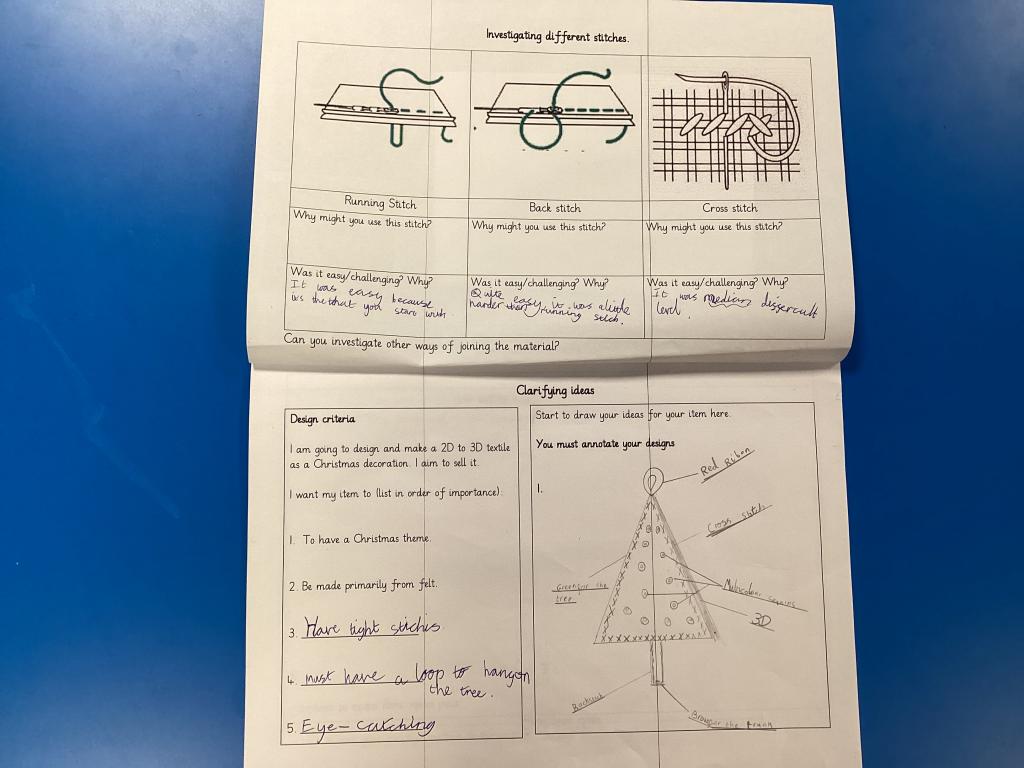 Investigating different stitches.
Running Stitch
Back stitch
Cross stitch
Why might you use this stitch?
Why might you use this stitch?
Why might you use this stitch?
Was it easy/challenging? Why?
It was easy because
its the that you start with
Was it easy/challenging? Why?
Quite easy it was a little
harder then running stich.
Was it easy/challenging? Why?
It was medium
level.
Can you investigate other ways of joining the material?
Clarifying ideas
Design criteria
I am going to design and make a 2D to 3D textile
as a Christmas decoration. I aim to sell it.
I want my item to (list in order of importance):
1. To have a Christmas theme.
2. Be made primarily from felt.
3. Have tight stiches
4. must have a loop to hang on
the tree.
5. Eye-catching
Start to draw your ideas for your item here.
You must annotate your designs
1.
Red Ribon
Cross stitch
Green for the
tree
Multicolour sequins
3D
Backstich
Brown for the trunk